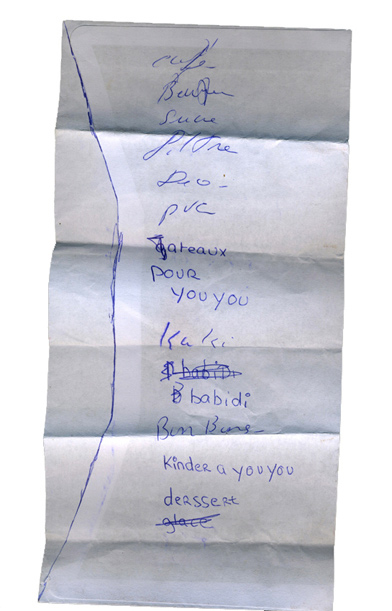 café
Sucre
filtre
Déo
PVC
gateaux
POUR
YOUYOU
Kaki
babidi
B babidi
Bon Bons
Kinder a YOUYOU
derssert
glace